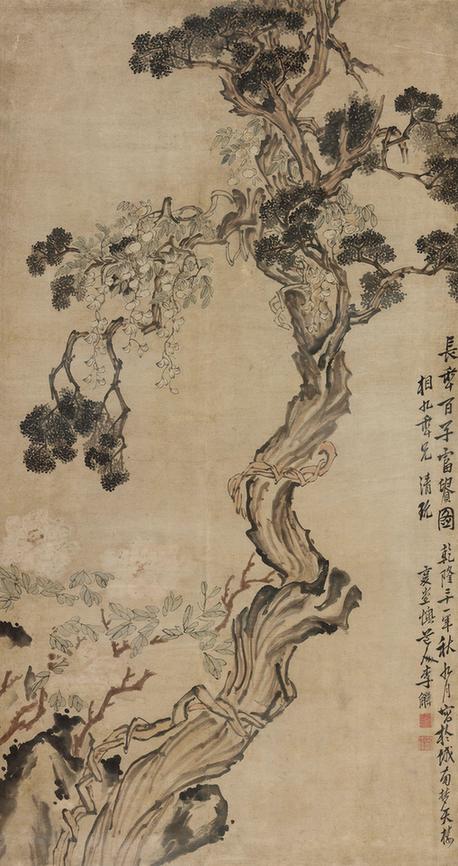 長年百子富貴圖 乾隆二十一年秋九月寫於城南天樓
相九年兄清玩
復堂懊道人李鱓